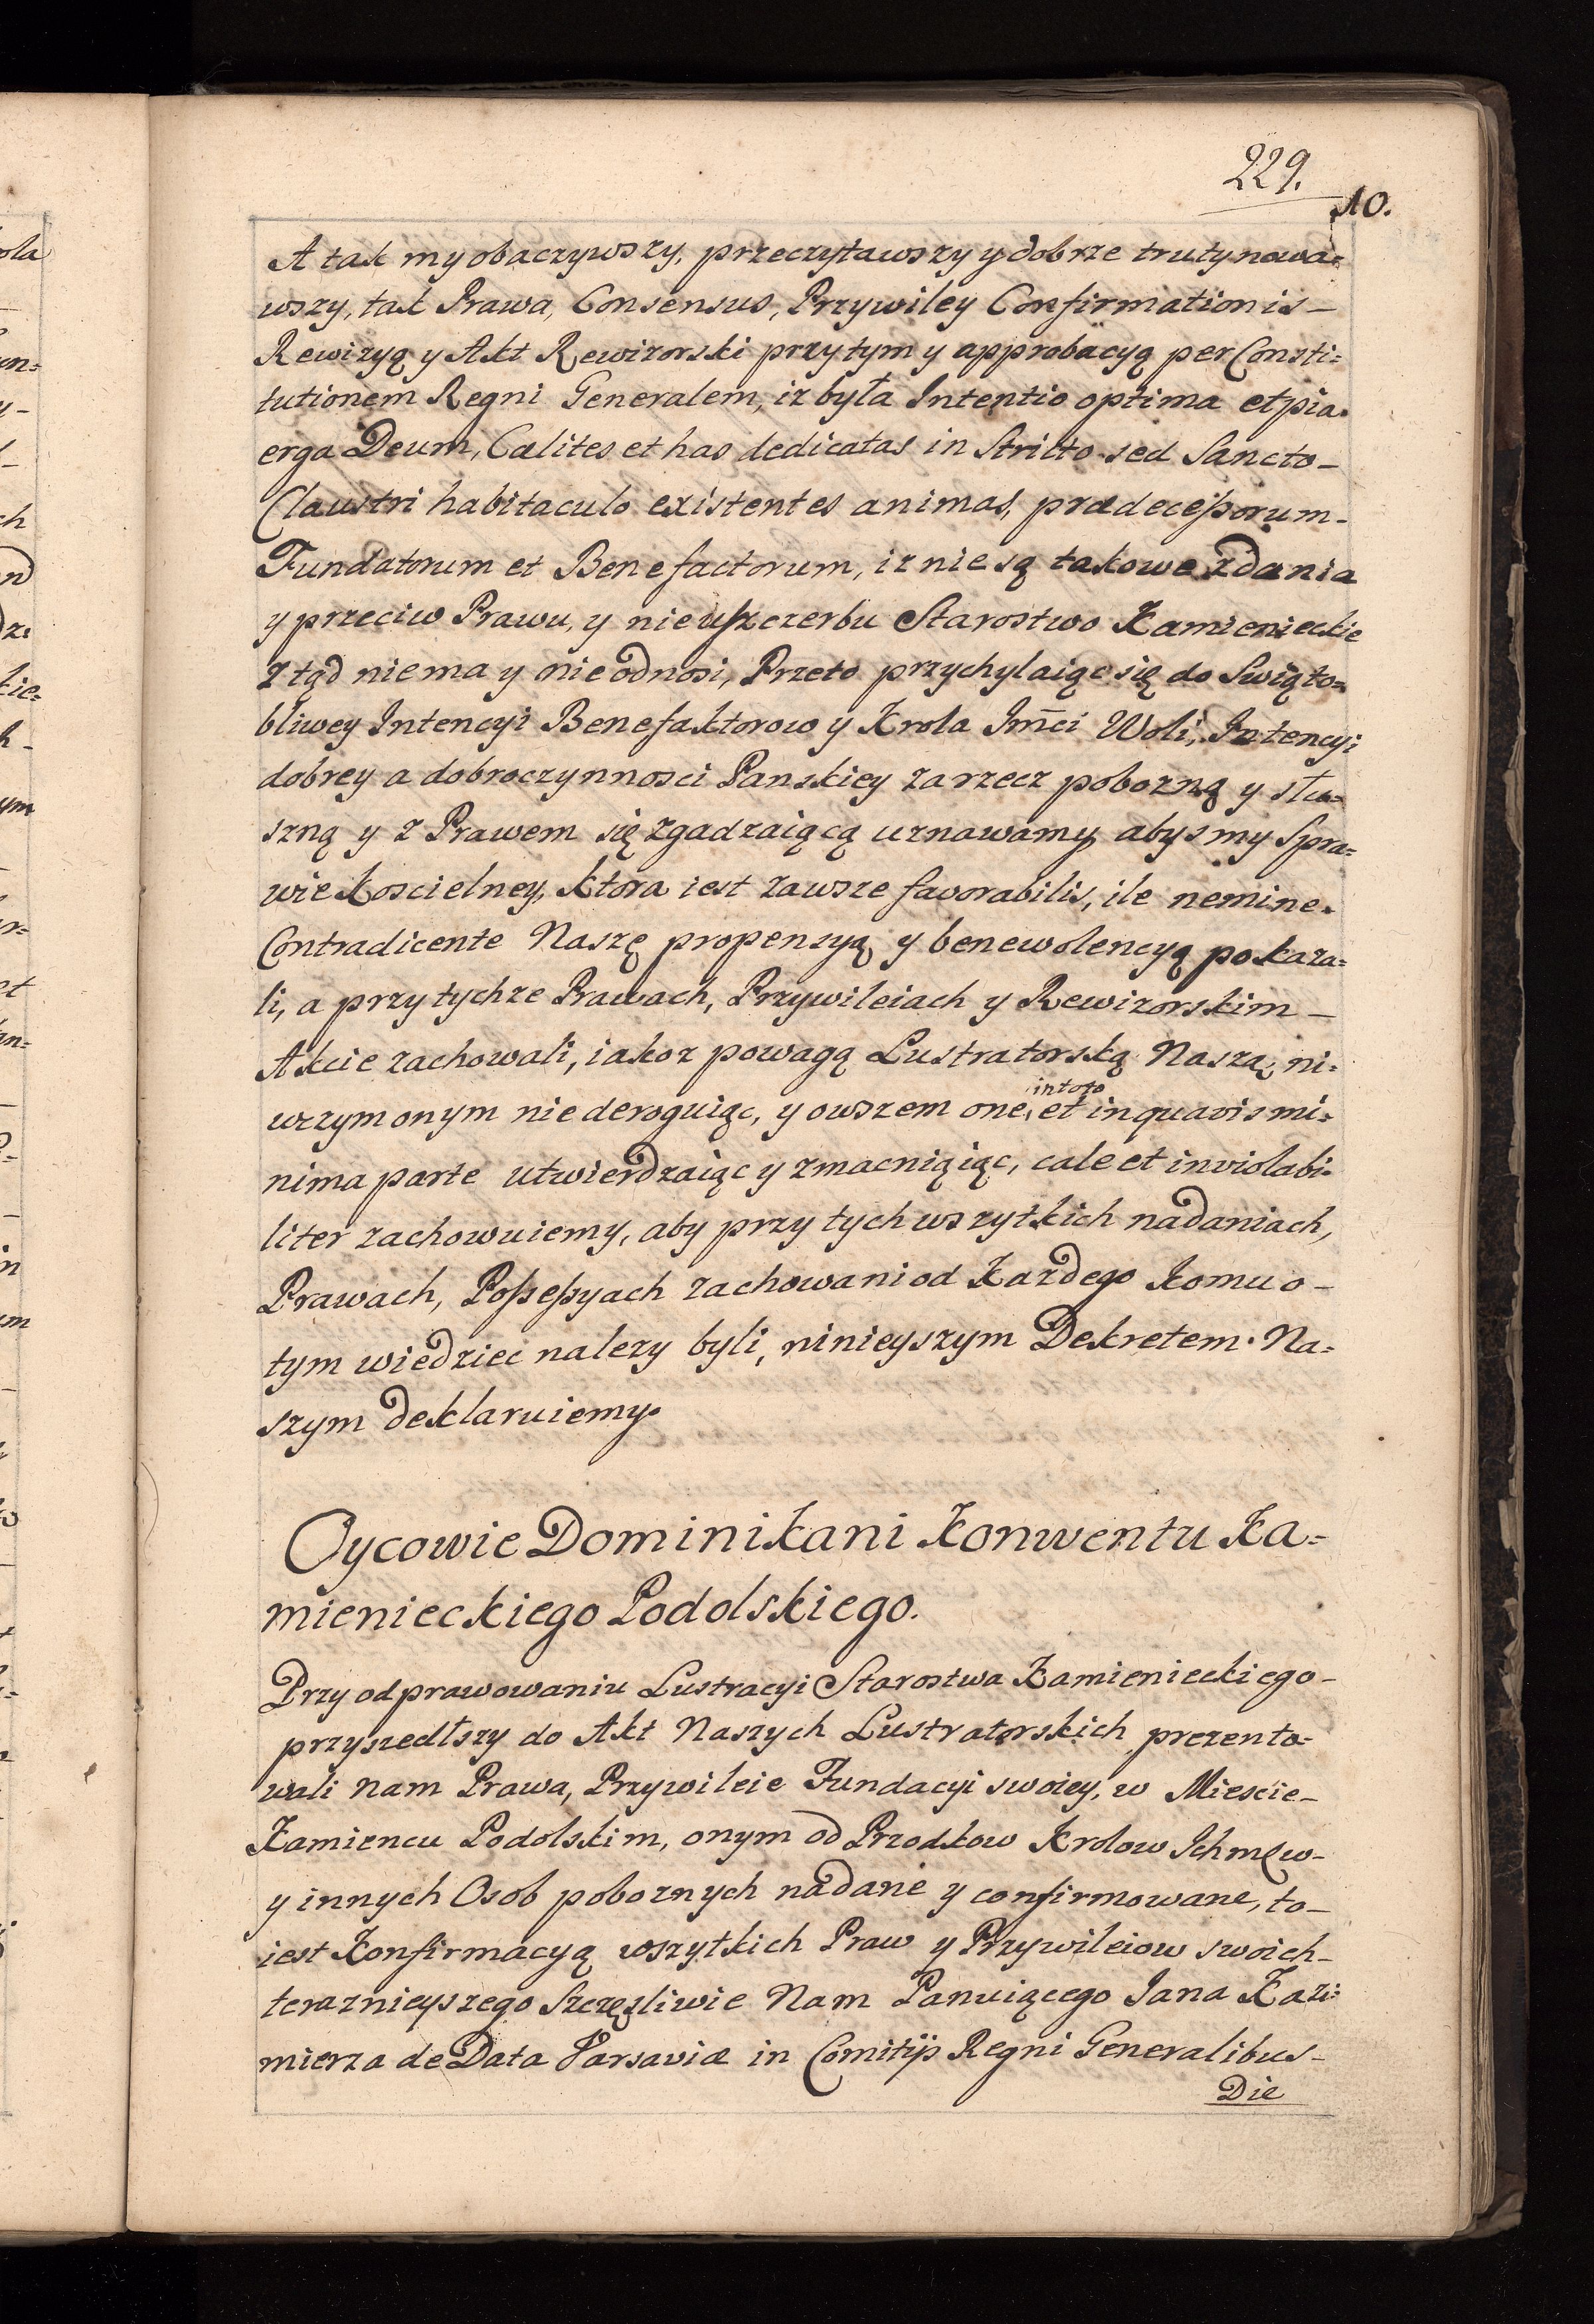 229.
10.
A tak my obaczywszy, przeczytawszy y dobrze trutynowa=
wszy, tak Prawa, Consensus, Przywiley Confirmationis –
Rewizyą y Akt Rewizorski przytym y approbacyą per Consti=
tutionem Regni Generalem, iz była Intentio optima et pia.
erga Deum, Cælites et has dedicatas in Stricto sed Sancto –
Claustri habitaculo existentes animas, prædeceßorum –
Fundatorum et Benefactorum, iz nie są takowe zdania
y przeciw Prawu, y nie uszczerbu Starostwo Kamienieckie
z tąd niema y nie odnosi, Przeto przychylaiąc się do Swiąto=
bliwey Intencyi Benefaktorow y Krola Jm̃ci Woli, Intencyi
dobrey a dobroczynnosci Panskiey za rzecz pobozną y słu=
szną y z Prawem się zgadzaiącą uznawamy, abysmy Spra=
wie Koscielney, Ktora iest zawsze favorabilis, ile nemine.
Contradicente Naszę propensyą y benewolencyą pokaza=
li, a przy tychze Prawach, Przywileiach y Rewizorskim –
Akcie zachowali, iakoz powagą Lustratorską Naszą, ni=
wczym onym nie deroguiąc, y owszem one, et in quavis mi=
in toto
nima parte utwierdzaiąc y zmacniąiąc, cale et inviolabi=
liter zachowuiemy, aby przy tych wszytkich nadaniach,
Prawach, Poßeßyach zachowani od Kazdego Komu o –
tym wiedziec nalezy byli, ninieyszym Dekretem Na=
szym deklaruiemy.
Oycowie Dominikani Konwentu Ka=
mienieckiego Podolskiego.
Przy odprawowaniu Lustracyi Starostwa Kamienieckiego –
przyszedłszy do Akt Naszych Lustratorskich prezento=
wali nam Prawa, Przywileie Fundacyi swoiey, w Miescie –
Kamiencu Podolskim, onym od Przodkow Krolow Ichmćw –
y innych Osob poboznych nadane y confirmowane, to –
iest Konfirmacyą wszytkich Praw y Przywileiow swoich –
teraznieyszego Szczęsliwie Nam Panuiącego Jana Kazi=
mierza de Data Varsaviæ in Comitijs Regni Generalibus –
Die